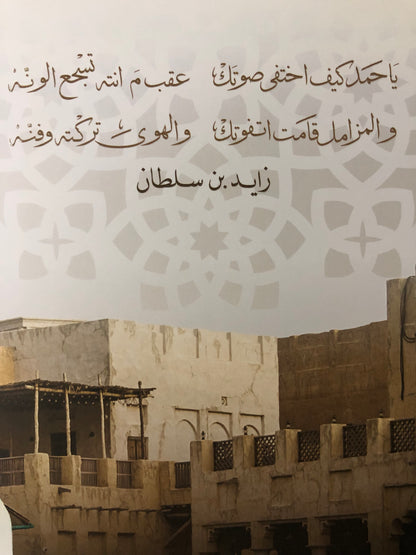 يا حمد كيف اختفى صوتك عقب م انته تسجع الونّه
والمزامل قامت اتفوتك والهوى تركته وفنّه
زايد بن سلطان